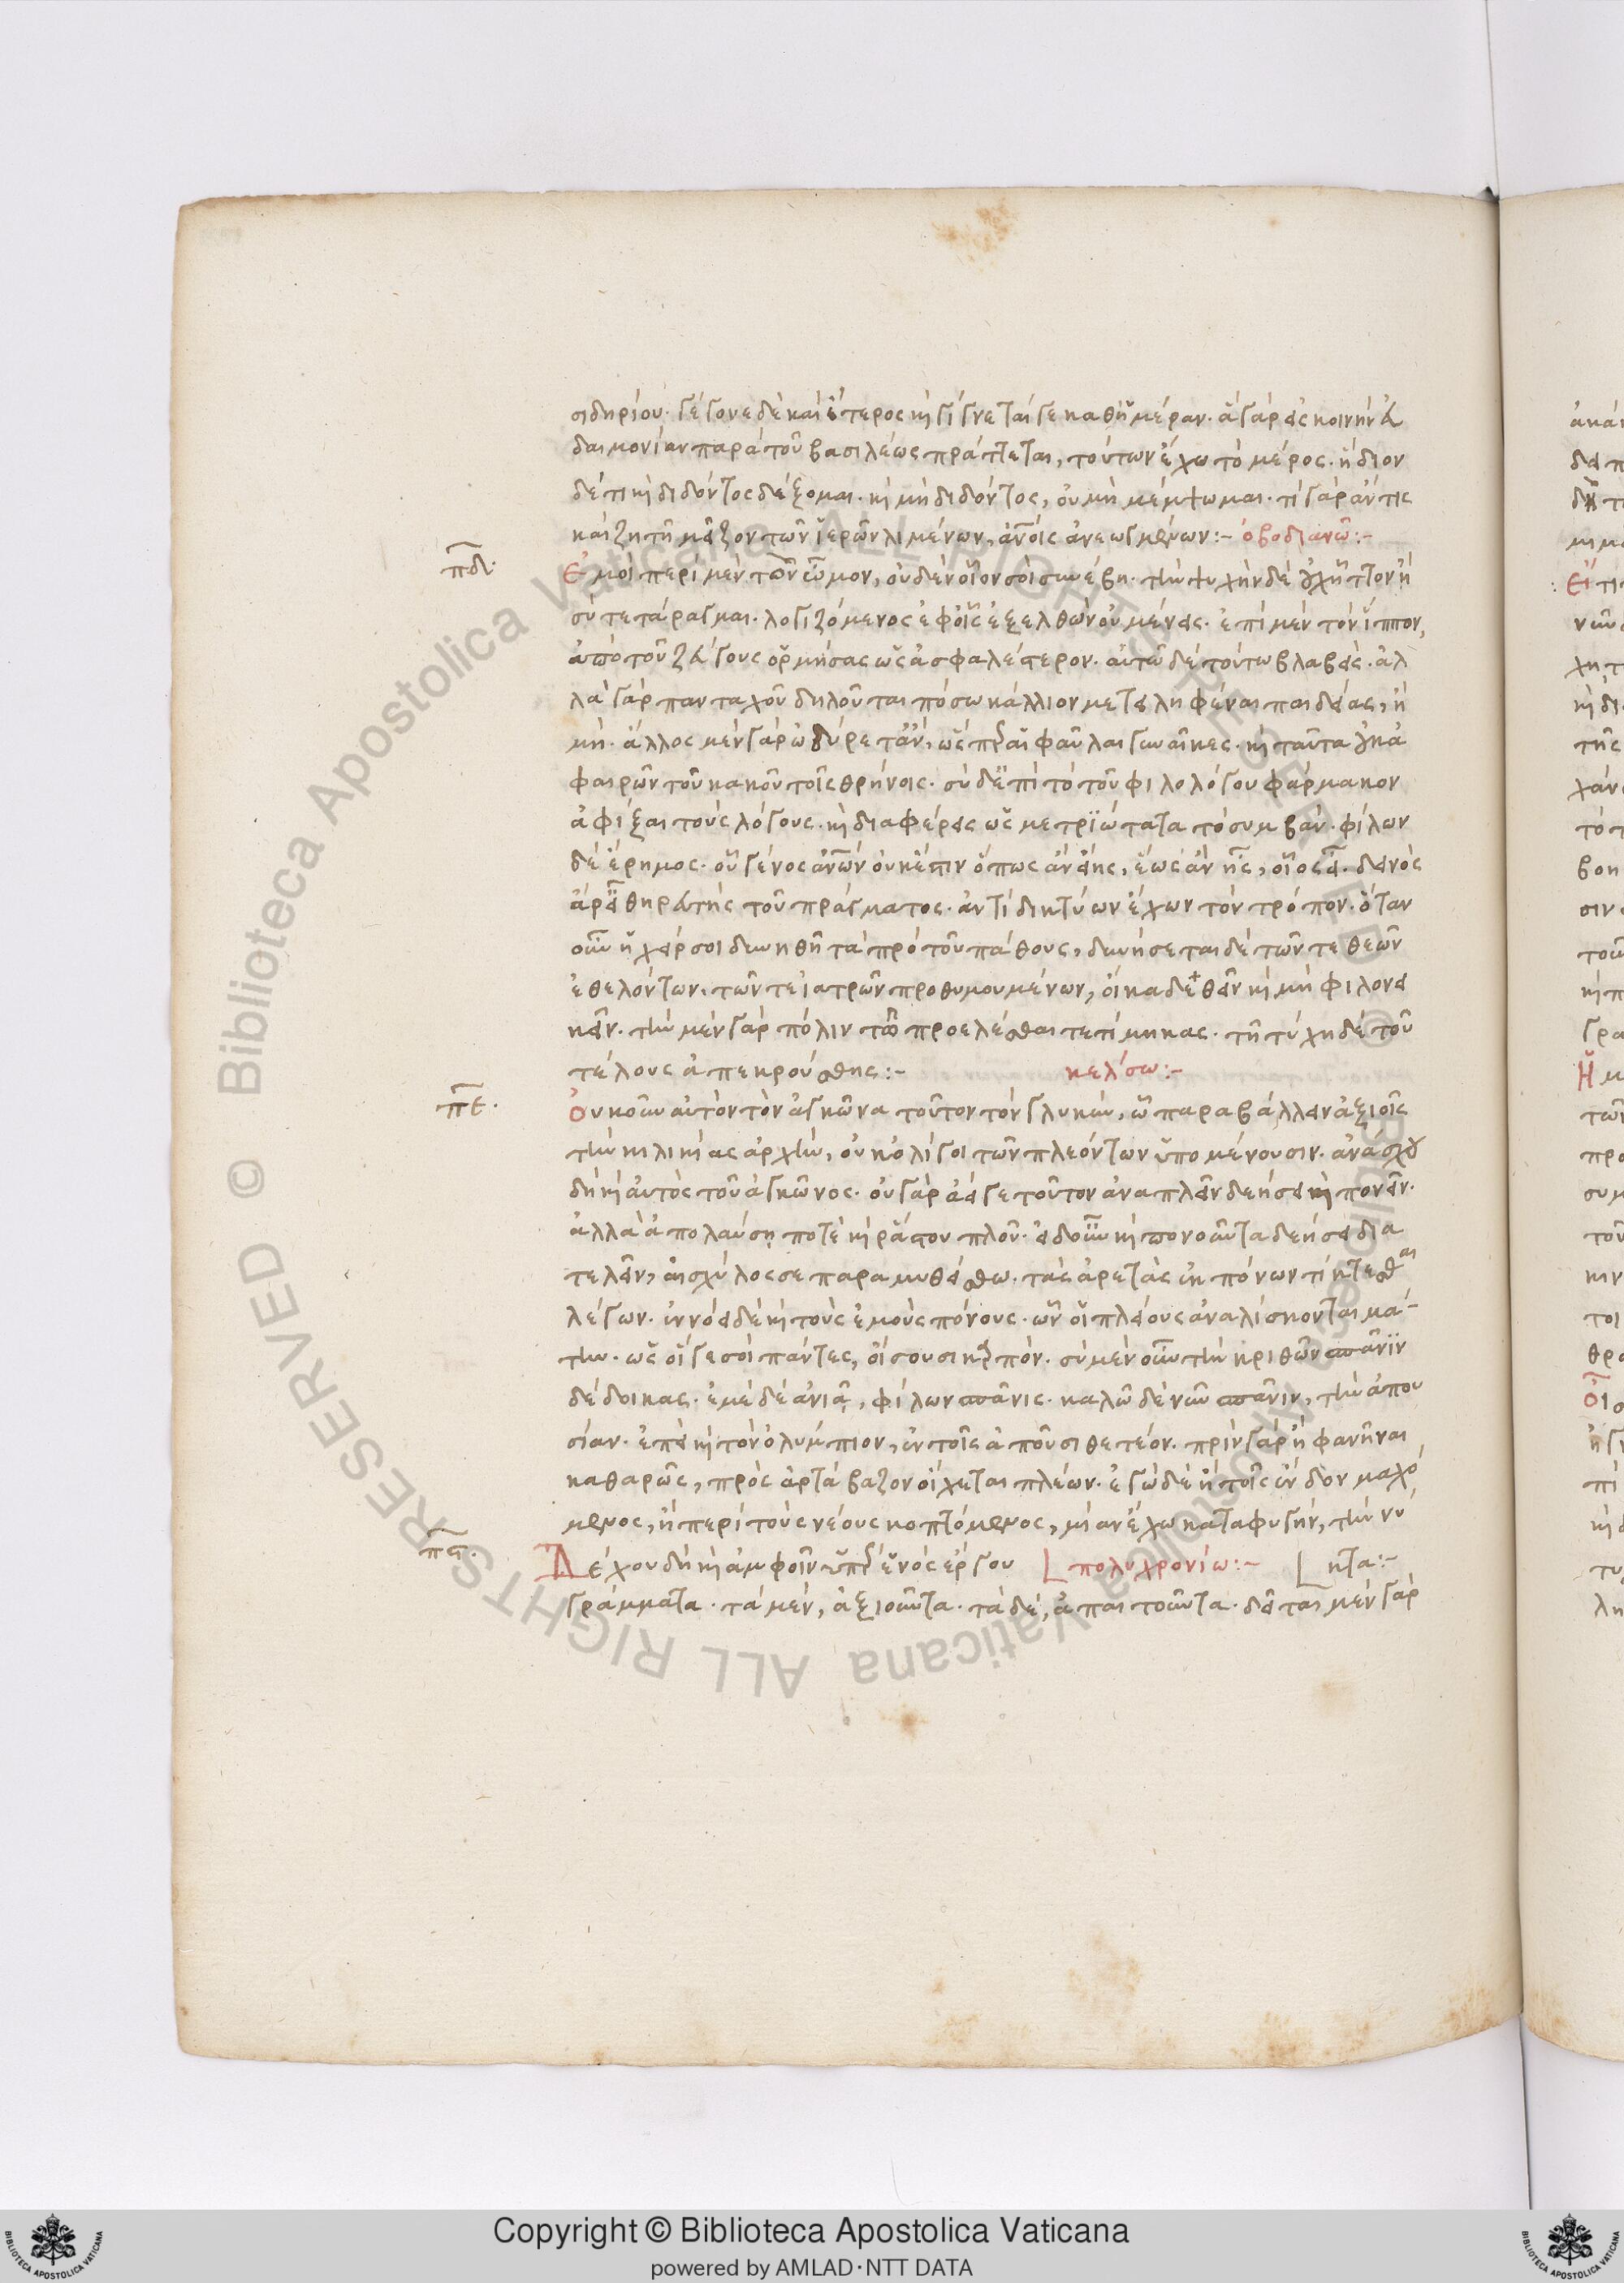 σιδηρίου. γέγονε δὲ καὶ ἕτερος κὶ γίγνεταί γε καθ' ἡμέραν. ἃ γὰρ εἰς κοινὴν εὐ
δαιμονίαν παρὰ τοῦ βασιλέως πράττεται, τούτων ἔχω τὸ μέρος. ἥδιον
δέ τι κὶ διδόντος δέξομαι. κὶ μὴ διδόντος, οὐ μὴ μέμψωμαι. τί γὰρ ἄν τις
καὶ ζητῇ μεῖζον τῶν ἱερῶν λιμένων, ἀνοῖς ἀνεωγμένων:- ὀβοδιανῶ:-
πδ. Ἐμοὶ περὶ μὲν τὸν ὦμον, οὐδὲν οἷον σοὶ συνέβη. τὴν ψυχὴν δὲ οὐχ ἧττον ἢ
σὺ τετάραγμαι. λογιζόμενος ἐφ' οἷς ἐξελθὼν οὐ μένεις. ἐπὶ μὲν τὸν ἵππον,
ἀπὸ τοῦ ζεύγους ὁρμήσας ὡς ἀσφαλέστερον. αὐτῶ δὲ τούτω βλαβείς. ἀλ
λὰ γὰρ πανταχοῦ δηλοῦται πόσω κάλλιον μετειληφέναι παιδείας, ἢ
μή. ἄλλος μὲν γὰρ ὠδύρετ' ἄν, ὥσπερ αἱ φαῦλαι γυναῖκες. κὶ ταῦτα οὐκ ἀ
φαιρῶν τοῦ κακοῦ τοῖς θρήνοις. σὺ δ' ἐπὶ τὸ τοῦ φιλολόγου φάρμακον
ἀφῖξαι τοὺς λόγους. κὶ διαφέρεις ὡς μετριώτατα τὸ συμβάν. φίλων
δὲ ἔρημος. οὗ γένος ἀνων οὐκ ἔστιν ὅπως ἂν εἴης, ἕως ἂν ᾖς, οἷος εἶ. δεινὸς
ἄρ' εἶ θηρευτὴς τοῦ πράγματος. ἀντὶ δικτύων ἔχων τὸν τρόπον. ὅταν
οὖν ἡ χείρ σοι δυνηθῇ τὰ πρὸ τοῦ πάθους, δυνήσεται δὲ τῶν τε θεῶν
ἐθελόντων. τῶν τε ἰατρῶν προθυμουμένων, οἴκαδε θεῖν κὶ μὴ φιλονει
κεῖν. τὴν μὲν γὰρ πόλιν τῶ προελέσθαι τετίμηκας. τῇ τύχη δὲ τοῦ
τέλους ἀπεκρούσθης:- κελσω:-
πε. Οὐκοῦν αὐτὸν τὸν ἀγκῶνα τοῦτον τὸν γλυκύν, ὧ παραβάλλειν ἀξιοῖς
τὴν κιλικίας ἀρχήν, οὐκ ὀλίγοι τῶν πλεόντων ὑπομένουσιν. ἀνάσχου
δὴ κὶ αὐτὸς τοῦ ἀγκῶνος. οὐ γὰρ ἀεί γε τοῦτον ἀναπλεῖν δεήσει κὶ πονεῖν.
ἀλλὰ ἀπολαύση ποτὲ κὶ ῥάστου πλοῦ. εἰ δ' οὖν κὶ πονοῦντα δεήσει δια
τελεῖν, αἰσχύλος σε παραμυθείσθω. τὰς ἀρετὰς ἐκ πόνων τίκτεσθαι
λέγων. ἐννόει δὲ κὶ τοὺς ἐμοὺς πόνους. ὧν οἱ πλείους ἀναλίσκονται μά-
την. ὡς οἵ γε σοὶ πάντες, οἴσουσι καρπόν. σὺ μὲν οὖν τὴν κριθῶν σπάνιν
δέδοικας. ἐμὲ δὲ ἀνιᾷ, φίλων σπάνις. καλῶ δὲ νῦν σπάνιν, τὴν ἀπου
σίαν. ἐπεὶ κὶ τὸν ὀλύμπιον, ἐν τοῖς ἀποῦσι θετέον. πρὶν γὰρ ἢ φανῆναι
καθαρῶς, πρὸς ἀρτάβαζον οἴχεται πλέων. ἐγὼ δὲ ἢ τοῖς ἔνδον μαχό
μενος, ἢ περὶ τοὺς νέους κοπτόμενος, μίαν ἔχω καταφυγήν, τὴν νύ
πϛ. Δέχου δὴ κὶ ἀμφοῖν ὑπὲρ ἑνὸς ἔργου πολυχρονίω:- κτα:-
γράμματα. τὰ μέν, ἀξιοῦντα. τὰ δέ, ἀπαιτοῦντα. δεῖται μὲν γὰρ
Copyright © Biblioteca Apostolica Vaticana
powered by AMLAD·NTT DATA